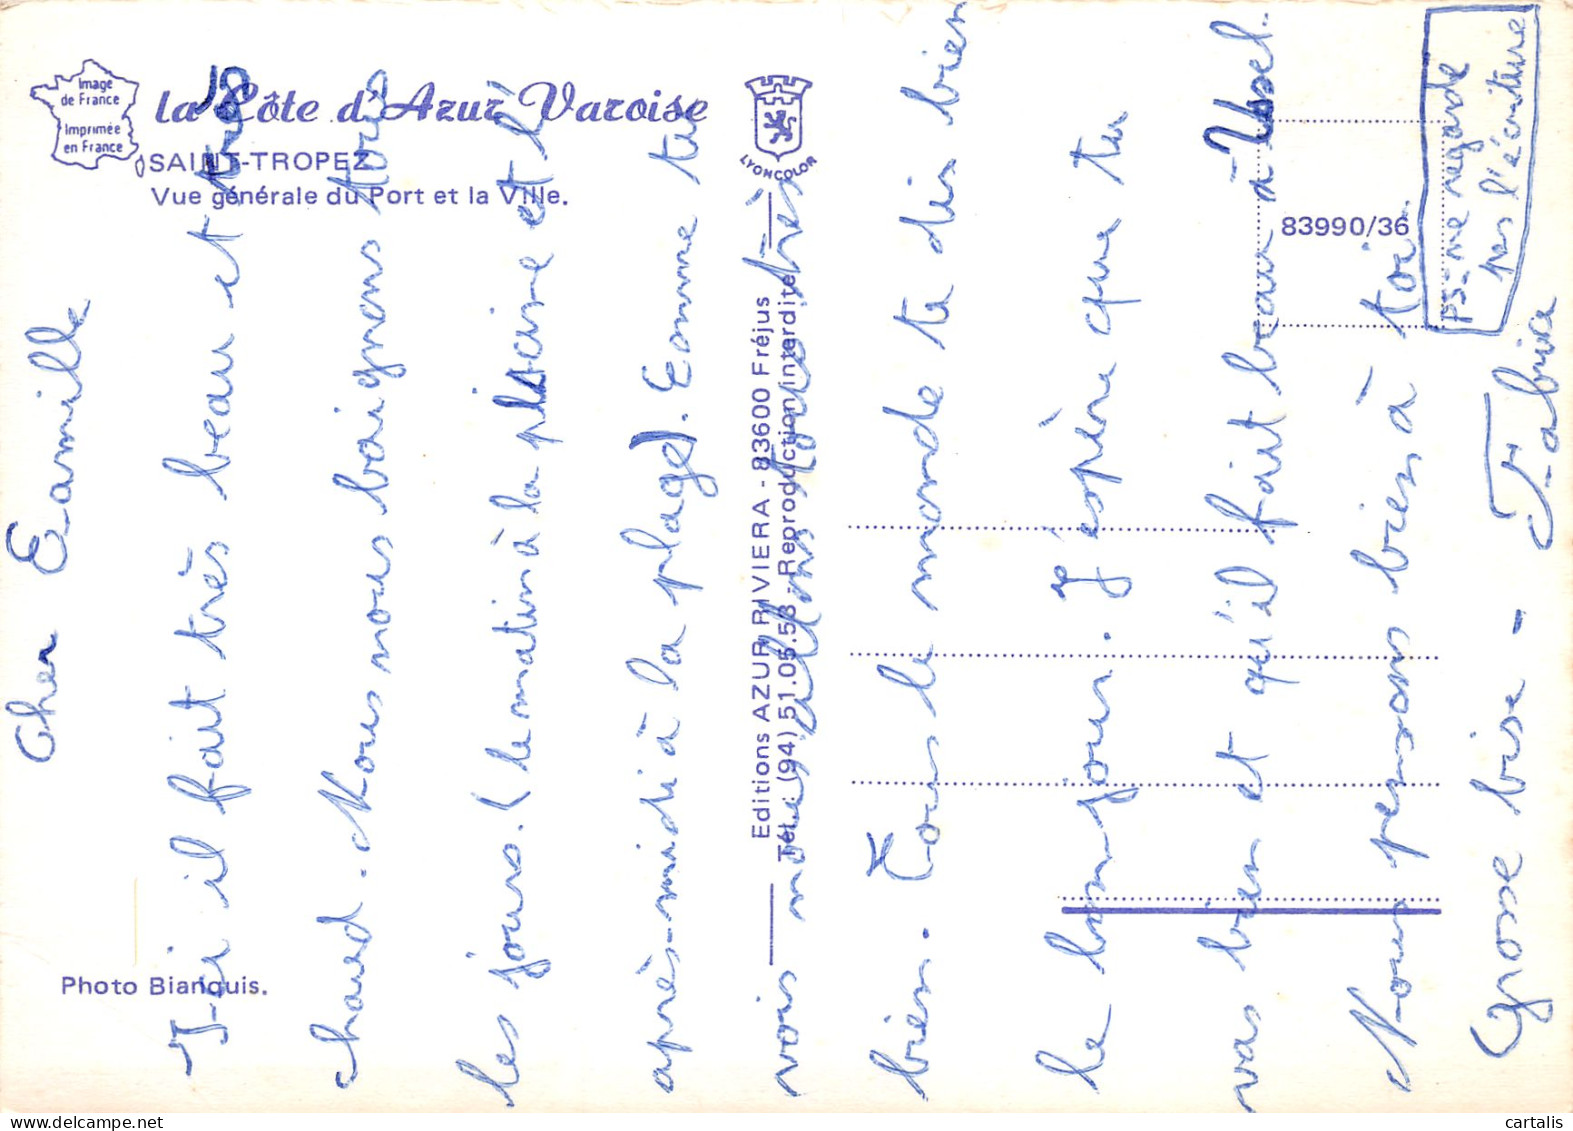 Image
de France
Imprimée
en France
la Côte d'Azur Varoise
SAINT-TROPEZ
Vue générale du Port et la Ville.
LYONCOLOR
83990/36
Editions AZUR RIVIERA - 83600 Fréjus
Tél.: (94) 51.05.53 - Reproduction interdite
Photo Bianquis.
Cher Camille
Ici il fait très beau et très
chaud. Nous nous baignons tous
les jours. (le matin à la piscine et l'
après-midi à la plage). Comme tu
vois nous allons tous très
bien. Tous le monde te dis bien
le bonjour. J'espère que tu
vas bien et qu'il fait beau à Ussel.
Nous pensons bien à toi.
Grosse bise - Fabrice
PS: ne regarde
pas l'écriture
cartalis
www.delcampe.net